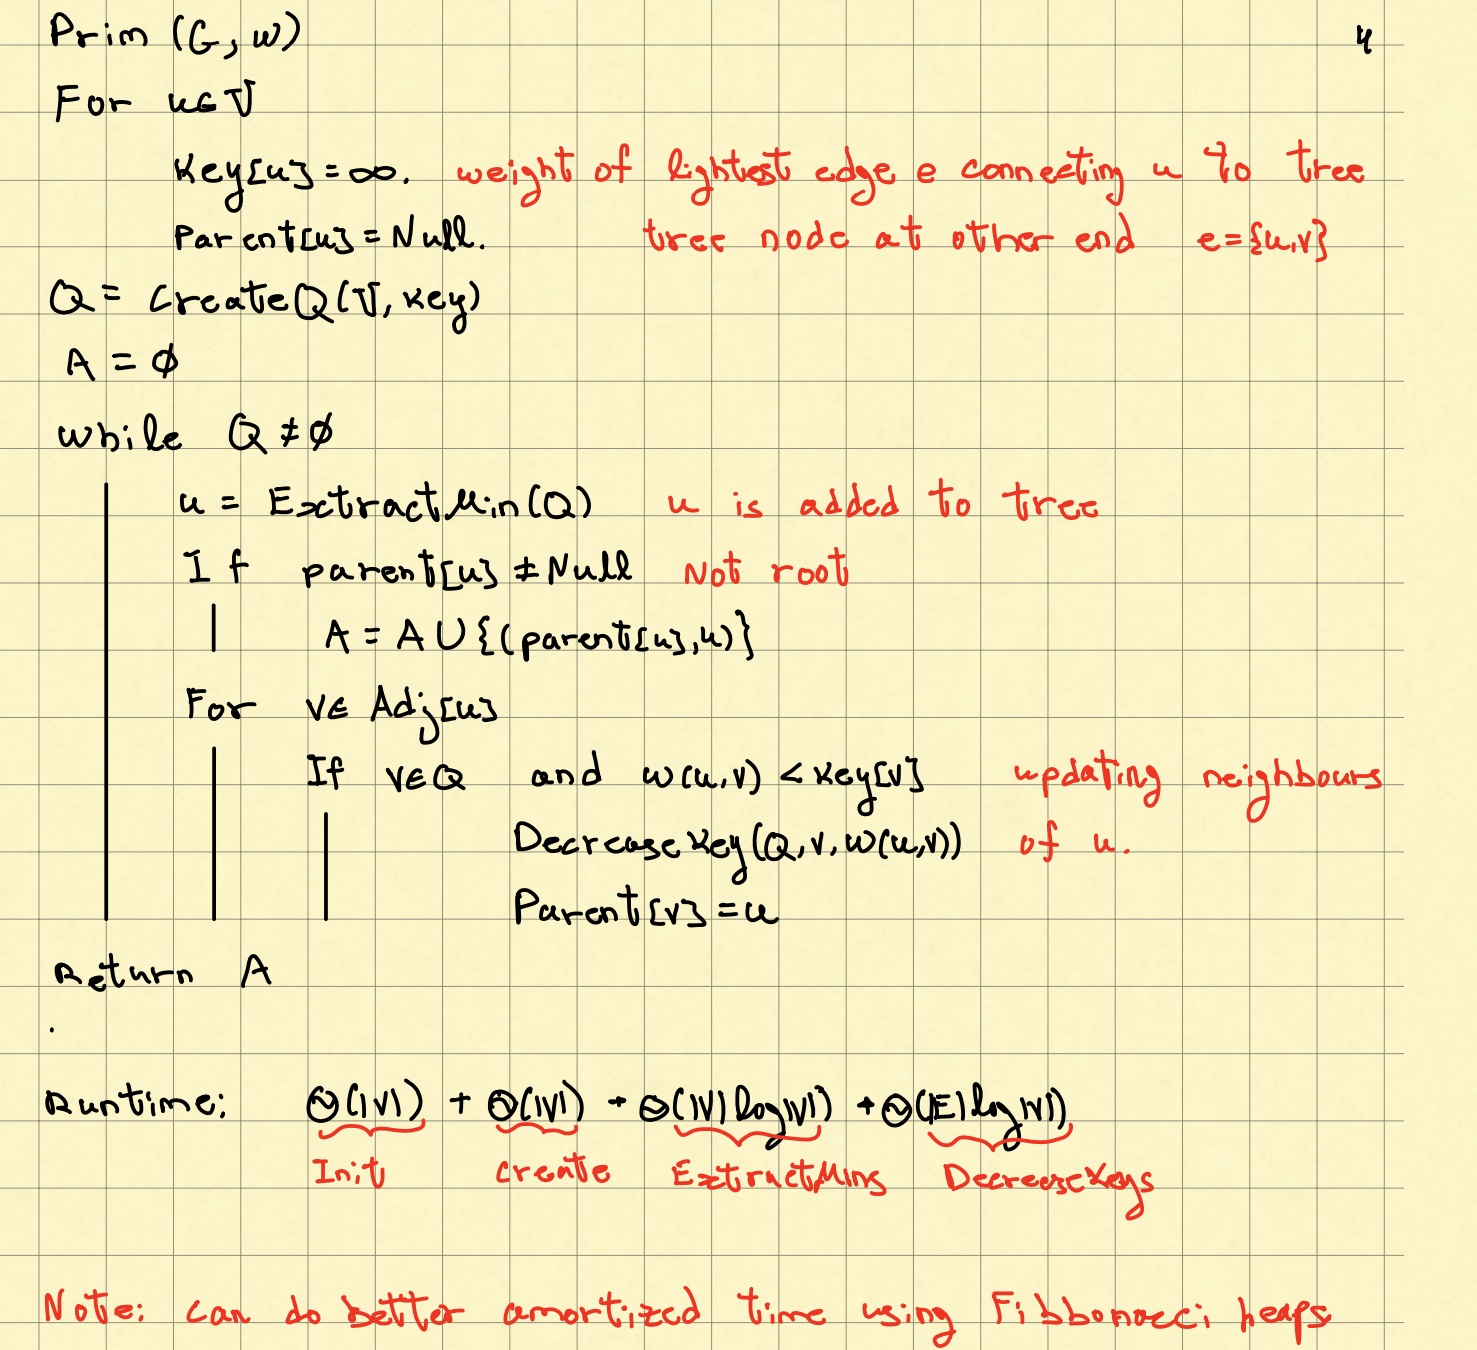 Prim (G, w) 4
For u∈V
Key[u] = ∞. weight of lightest edge e connecting u to tree
Parent[u] = Null. tree node at other end e={u,v}
Q = CreateQ(V, Key)
A = ∅
while Q ≠ ∅
u = ExtractMin(Q) u is added to tree
If parent[u] ≠ Null Not root
A = A ∪ {(parent[u], u)}
For v∈ Adj[u]
If v∈Q and w(u,v) < Key[v] updating neighbours
DecreaseKey(Q, v, w(u,v)) of u.
Parent[v] = u
Return A
.
Runtime: Θ(|V|) + Θ(|V|) + Θ(|V| log|V|) + Θ(|E| log|V|)
Init Create ExtractMins DecreaseKeys
Note: can do better amortized time using Fibbonacci heaps